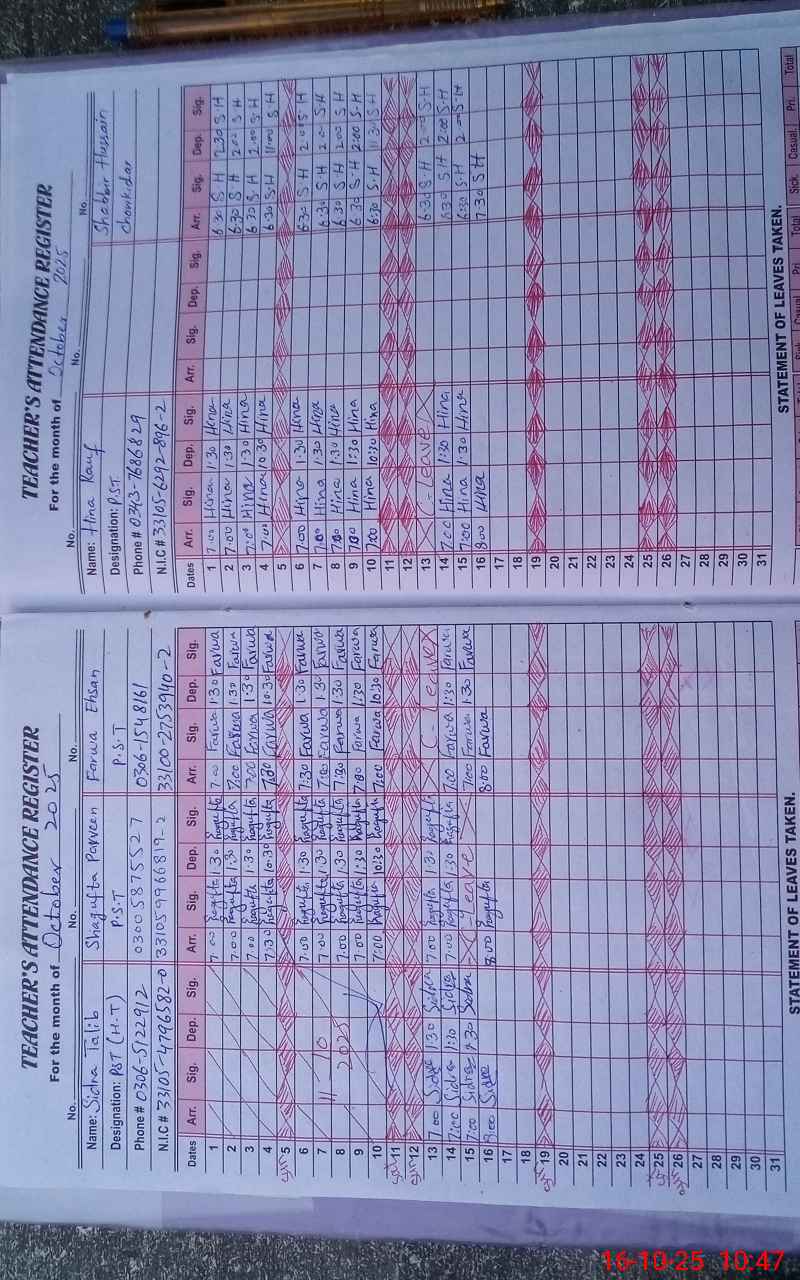 TEACHER'S ATTENDANCE REGISTER
For the month of October 2025
No. No.
Name: Sidra Talib Shagufta Parveen Farwa Ehsan
Designation: PST (H.T) P.S.T P.S.T
Phone # 0306-5122912 0300 5875527 0306-1548161
N.I.C # 33105-4796582-0 3310599668 19-2 33100-2753940-2
Dates Arr. Sig. Dep. Sig. Arr. Sig. Dep. Sig. Arr. Sig. Dep. Sig.
1 7.00 Shagufta 1:30 Shagufta 7.00 Farwa 1:30 Farwa
2 7.00 Shagufta 1:30 Shagufta 7:00 Farwa 1:30 Farwa
3 7.00 Shagufta 1:30 Shagufta 7:00 Farwa 1:30 Farwa
4 7:30 Shagufta 10:30 Shagufta 7:30 Farwa 10:30 Farwa
5
6 7:00 Shagufta 1:30 Shagufta 7:30 Farwa 1:30 Farwa
7 11-10 7:00 Shagufta 1:30 Shagufta 7:00 Farwa 1:30 Farwa
8 2025 7:00 Shagufta 1:30 Shagufta 7:30 Farwa 1:30 Farwa
9 7:00 Shagufta 1:30 Shagufta 7:00 Farwa 1:30 Farwa
10 7:00 Shagufta 10:30 Shagufta 7:00 Farwa 10:30 Farwa
11
12
13 7:00 Sidra 1:30 Sidra 7:00 Shagufta 1:30 Shagufta C- Leave
14 7:00 Sidra 1:30 Sidra 7:00 Shagufta 1:30 Shagufta 7:00 Farwa 1:30 Farwa
15 7:00 Sidra 1:30 Sidra C- Leave 7:00 Farwa 1:30 Farwa
16 8:00 Sidra 8:00 Shagufta 8:00 Farwa
17
18
19
20
21
22
23
24
25
26
27
28
29
30
31
STATEMENT OF LEAVES TAKEN.
TEACHER'S ATTENDANCE REGISTER
For the month of October 2025
No. No. No.
Name: Hina Rauf Shabbir Hussain
Designation: PST chowkidar
Phone # 0343-7686829
N.I.C # 33105-6292-896-2
Dates Arr. Sig. Dep. Sig. Arr. Sig. Dep. Sig. Arr. Sig. Dep. Sig.
1 7:00 Hina 1:30 Hina 6:30 S.H 2:30 S.H
2 7:00 Hina 1:30 Hina 6:30 S.H 2:00 S.H
3 7:00 Hina 1:30 Hina 6:30 S.H 2:00 S.H
4 7:00 Hina 10:30 Hina 6:30 S.H 11:00 S.H
5
6 7:00 Hina 1:30 Hina 6:30 S.H 2:00 S.H
7 7:00 Hina 1:30 Hina 6:30 S.H 2:00 S.H
8 7:00 Hina 1:30 Hina 6:30 S.H 2:00 S.H
9 7:00 Hina 1:30 Hina 6:30 S.H 2:00 S.H
10 7:00 Hina 10:30 Hina 6:30 S.H 11:30 S.H
11
12
13 C- Leave 6:30 S.H 2:00 S.H
14 7:00 Hina 1:30 Hina 6:30 S.H 2:00 S.H
15 7:00 Hina 1:30 Hina 6:30 S.H 2:00 S.H
16 8:00 Hina 7:30 S.H
17
18
19
20
21
22
23
24
25
26
27
28
29
30
31
STATEMENT OF LEAVES TAKEN.
Casual Pri. Total Sick. Casual. Pri. Total
16-10-25 10:47